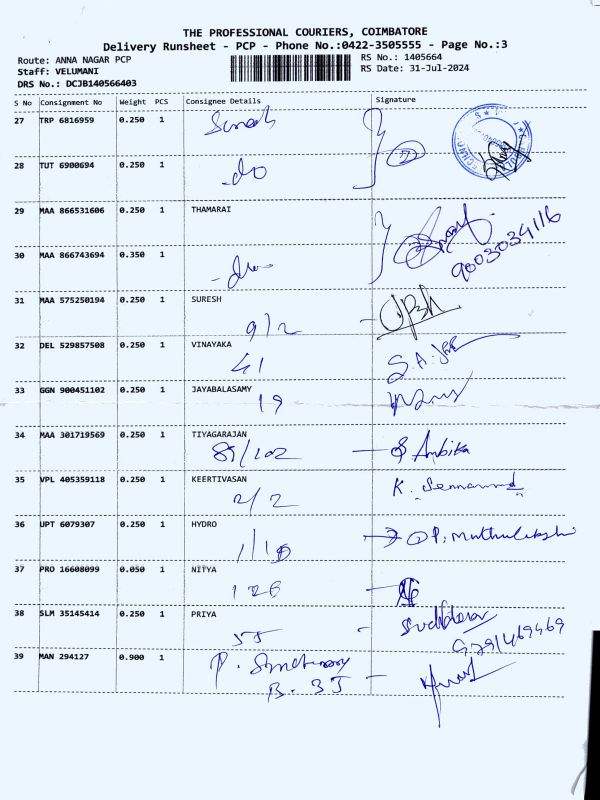 THE PROFESSIONAL COURIERS, COIMBATORE
Delivery Runsheet - PCP - Phone No.:0422-3505555 - Page No.:3
Route: ANNA NAGAR PCP
Staff: VELUMANI
DRS No.: DCJB140566403
RS No.: 1405664
RS Date: 31-Jul-2024
S No Consignment No Weight PCS Consignee Details Signature
27 TRP 6816959 0.250 1 Suresh
28 TUT 6900694 0.250 1 -do
29 MAA 866531606 0.250 1 THAMARAI
9003034116
30 MAA 866743694 0.350 1
31 MAA 575250194 0.250 1 SURESH
9/2
32 DEL 529857508 0.250 1 VINAYAKA
41
33 GGN 900451102 0.250 1 JAYABALASAMY
19
34 MAA 301719569 0.250 1 TIYAGARAJAN
/102 Ambika
35 VPL 405359118 0.250 1 KEERTIVASAN
2/2 K.
36 UPT 6079307 0.250 1 HYDRO
P. Muthulakshi
37 PRO 16608099 0.050 1 NITYA
126
38 SLM 35145414 0.250 1 PRIYA
39 MAN 294127 0.900 1 P.
B.